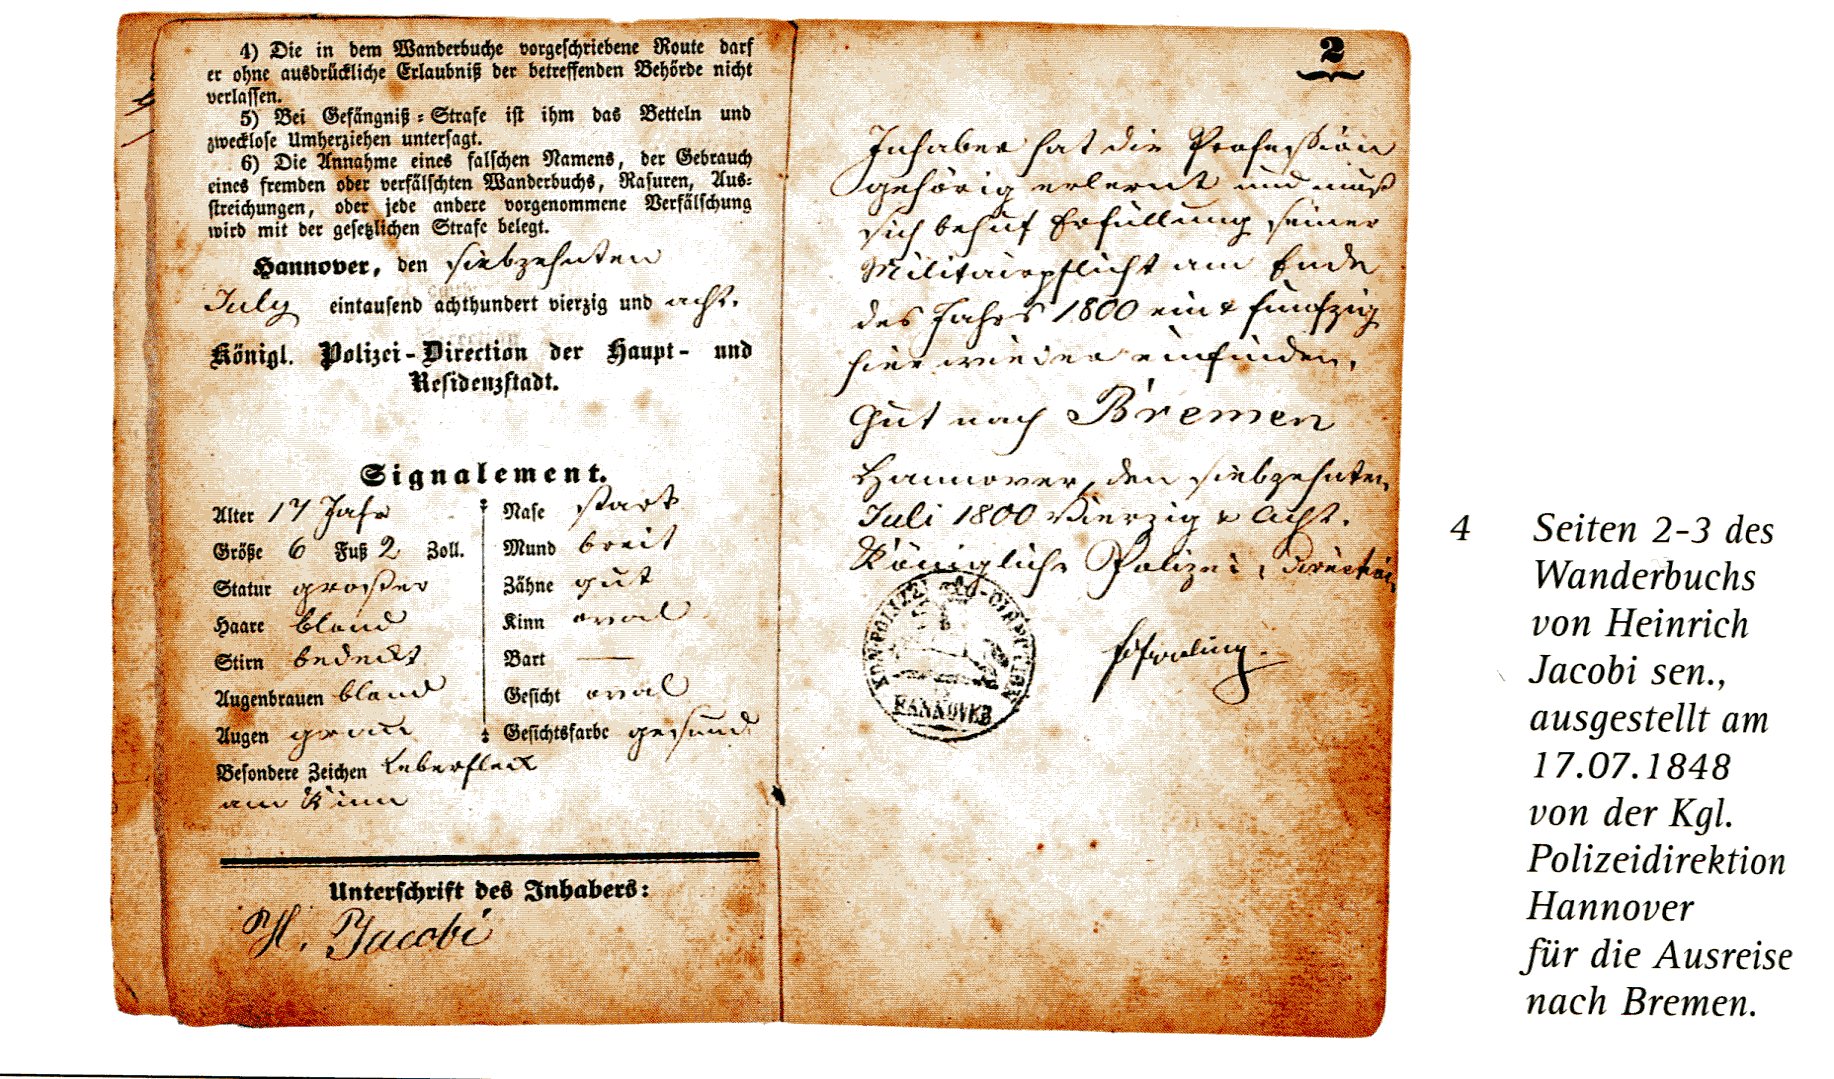 4) Die in dem Wanderbuche vorgeschriebene Route darf
er ohne ausdrückliche Erlaubniß der betreffenden Behörde nicht
verlassen.
5) Bei Gefängniß-Strafe ist ihm das Betteln und
zwecklose Umherziehen untersagt.
6) Die Annahme eines falschen Namens, der Gebrauch
eines fremden oder verfälschten Wanderbuchs, Rasuren, Aus-
streichungen, oder jede andere vorgenommene Verfälschung
wird mit der gesetzlichen Strafe belegt.
Hannover, den siebzehnten
July eintausend achthundert vierzig und acht.
Königl. Polizei-Direction der Haupt- und
Residenzstadt.
Signalement.
Alter 17 Jahr
Größe 6 Fuß 2 Zoll.
Statur großer
Haare blond
Stirn bedeckt
Augenbrauen blond
Augen grau
Nase stark
Mund breit
Zähne gut
Kinn oval
Bart —
Gesicht oval
Gesichtsfarbe gesund
Besondere Zeichen Leberfleck
am Kinn
Unterschrift des Inhabers:
H. Jacobi
2
Inhaber hat die Profession
gehörig erlernt und muß
sich behuf Erfüllung seiner
Militairpflicht am Ende
des Jahrs 1800 ein & funfzig
hier wieder einfinden.
Gut nach Bremen
Hannover, den siebzehnten
Juli 1800 Vierzig & Acht.
Königliche Polizei-Direction.
HANNOVER
4 Seiten 2-3 des
Wanderbuchs
von Heinrich
Jacobi sen.,
ausgestellt am
17.07.1848
von der Kgl.
Polizeidirektion
Hannover
für die Ausreise
nach Bremen.